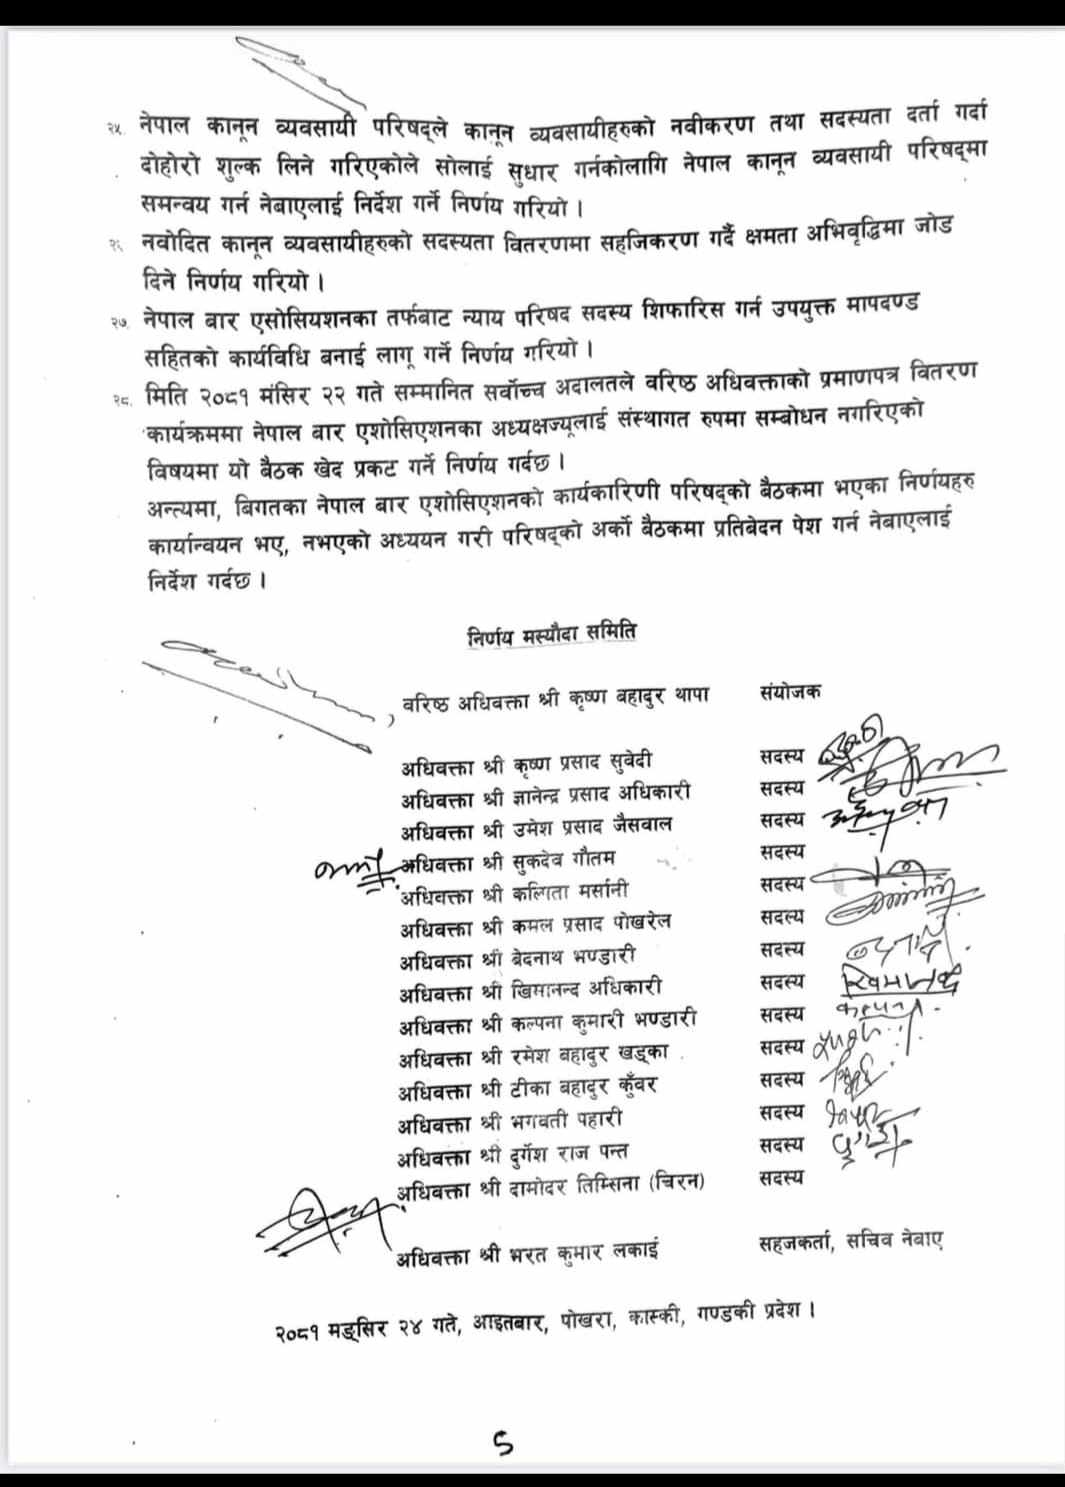 २५. नेपाल कानून व्यवसायी परिषद्ले कानून व्यवसायीहरुको नवीकरण तथा सदस्यता दर्ता गर्दा
दोहोरो शुल्क लिने गरिएकोले सोलाई सुधार गर्नकोलागि नेपाल कानून व्यवसायी परिषद्मा
समन्वय गर्न नेबाएलाई निर्देश गर्ने निर्णय गरियो ।
२६ नवोदित कानून व्यवसायीहरुको सदस्यता वितरणमा सहजिकरण गर्दै क्षमता अभिवृद्धिमा जोड
दिने निर्णय गरियो ।
२७. नेपाल बार एसोसियशनका तर्फबाट न्याय परिषद सदस्य शिफारिस गर्न उपयुक्त मापदण्ड
सहितको कार्यविधि बनाई लागू गर्ने निर्णय गरियो ।
२८. मिति २०८१ मंसिर २२ गते सम्मानित सर्वोच्च अदालतले वरिष्ठ अधिवक्ताको प्रमाणपत्र वितरण
कार्यक्रममा नेपाल बार एशोसिएशनका अध्यक्षज्यूलाई संस्थागत रुपमा सम्बोधन नगरिएको
विषयमा यो बैठक खेद प्रकट गर्ने निर्णय गर्दछ ।
अन्त्यमा, बिगतका नेपाल बार एशोसिएशनको कार्यकारिणी परिषद्को बैठकमा भएका निर्णयहरु
कार्यान्वयन भए, नभएको अध्ययन गरी परिषद्को अर्को बैठकमा प्रतिबेदन पेश गर्न नेबाएलाई
निर्देश गर्दछ ।
निर्णय मस्यौदा समिति
वरिष्ठ अधिवक्ता श्री कृष्ण बहादुर थापा संयोजक
अधिवक्ता श्री कृष्ण प्रसाद सुवेदी सदस्य
अधिवक्ता श्री ज्ञानेन्द्र प्रसाद अधिकारी सदस्य
अधिवक्ता श्री उमेश प्रसाद जैसवाल सदस्य
अधिवक्ता श्री सुकदेव गौतम सदस्य
अधिवक्ता श्री कल्पिता मर्सानी सदस्य
अधिवक्ता श्री कमल प्रसाद पोखरेल सदस्य
अधिवक्ता श्री बेदनाथ भण्डारी सदस्य
अधिवक्ता श्री खिमानन्द अधिकारी सदस्य खिमानन्द
अधिवक्ता श्री कल्पना कुमारी भण्डारी सदस्य कल्पना
अधिवक्ता श्री रमेश बहादुर खड्का सदस्य
अधिवक्ता श्री टीका बहादुर कुँवर सदस्य
अधिवक्ता श्री भगवती पहारी सदस्य
अधिवक्ता श्री दुर्गेश राज पन्त सदस्य
अधिवक्ता श्री दामोदर तिम्सिना (चिरन) सदस्य
अधिवक्ता श्री भरत कुमार लकाई सहजकर्ता, सचिव नेबाए
२०८१ मङ्सिर २४ गते, आइतबार, पोखरा, कास्की, गण्डकी प्रदेश ।
5